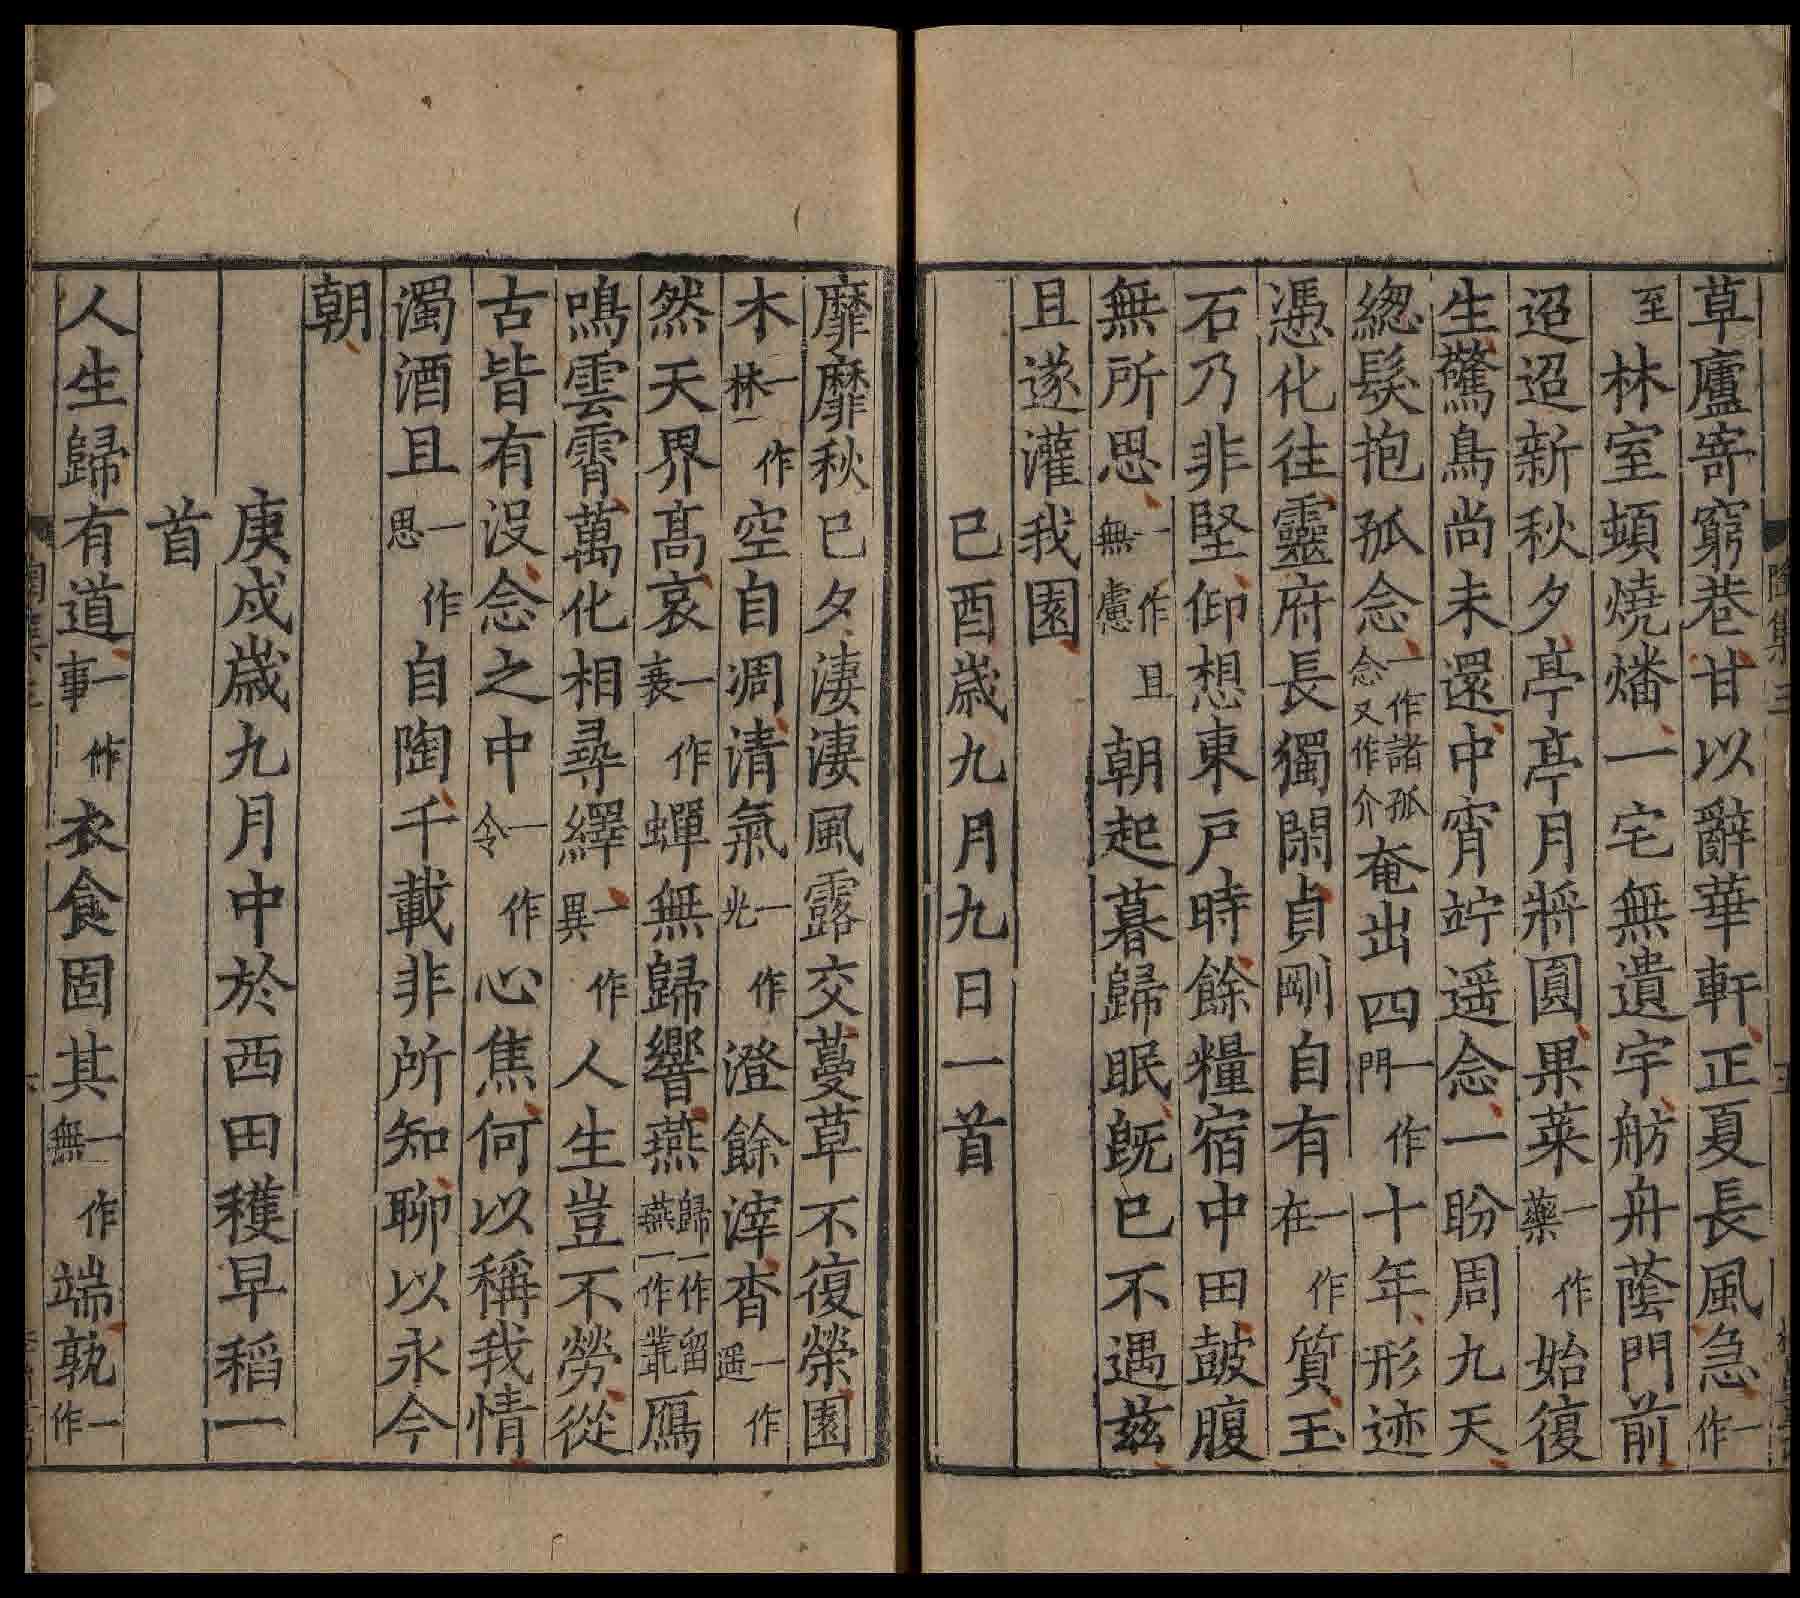 草廬寄窮巷甘以辭華軒正夏長風急一作
至林室頓燒燔一宅無遺宇舫舟蔭門前
迢迢新秋夕亭亭月將圓果菜一作藥始復
生驚鳥尚未還中宵竚遥念一盼周九天
緫髮抱孤念一作諸孤念又作介奄出四一作門十年形迹
憑化往靈府長獨閑貞剛自有一作在質玉
石乃非堅仰想東戸時餘糧宿中田鼓腹
無所思一作無慮且朝起暮歸眠既已不遇兹
且遂灌我園
己酉歳九月九日一首
靡靡秋已夕淒淒風露交蔓草不復榮園
木一作林空自凋清氣一作光澄餘滓杳一作遥
然天界髙哀一作衰蟬無歸響燕歸一作留燕一作叢鴈
鳴雲霄萬化相尋繹一作異人生豈不勞從
古皆有没念之中一作令心焦何以稱我情
濁酒且一作思自陶千載非所知聊以永今
朝
庚戍歳九月中於西田穫早稻一
首
人生歸有道一作事衣食固其一作無端孰一作